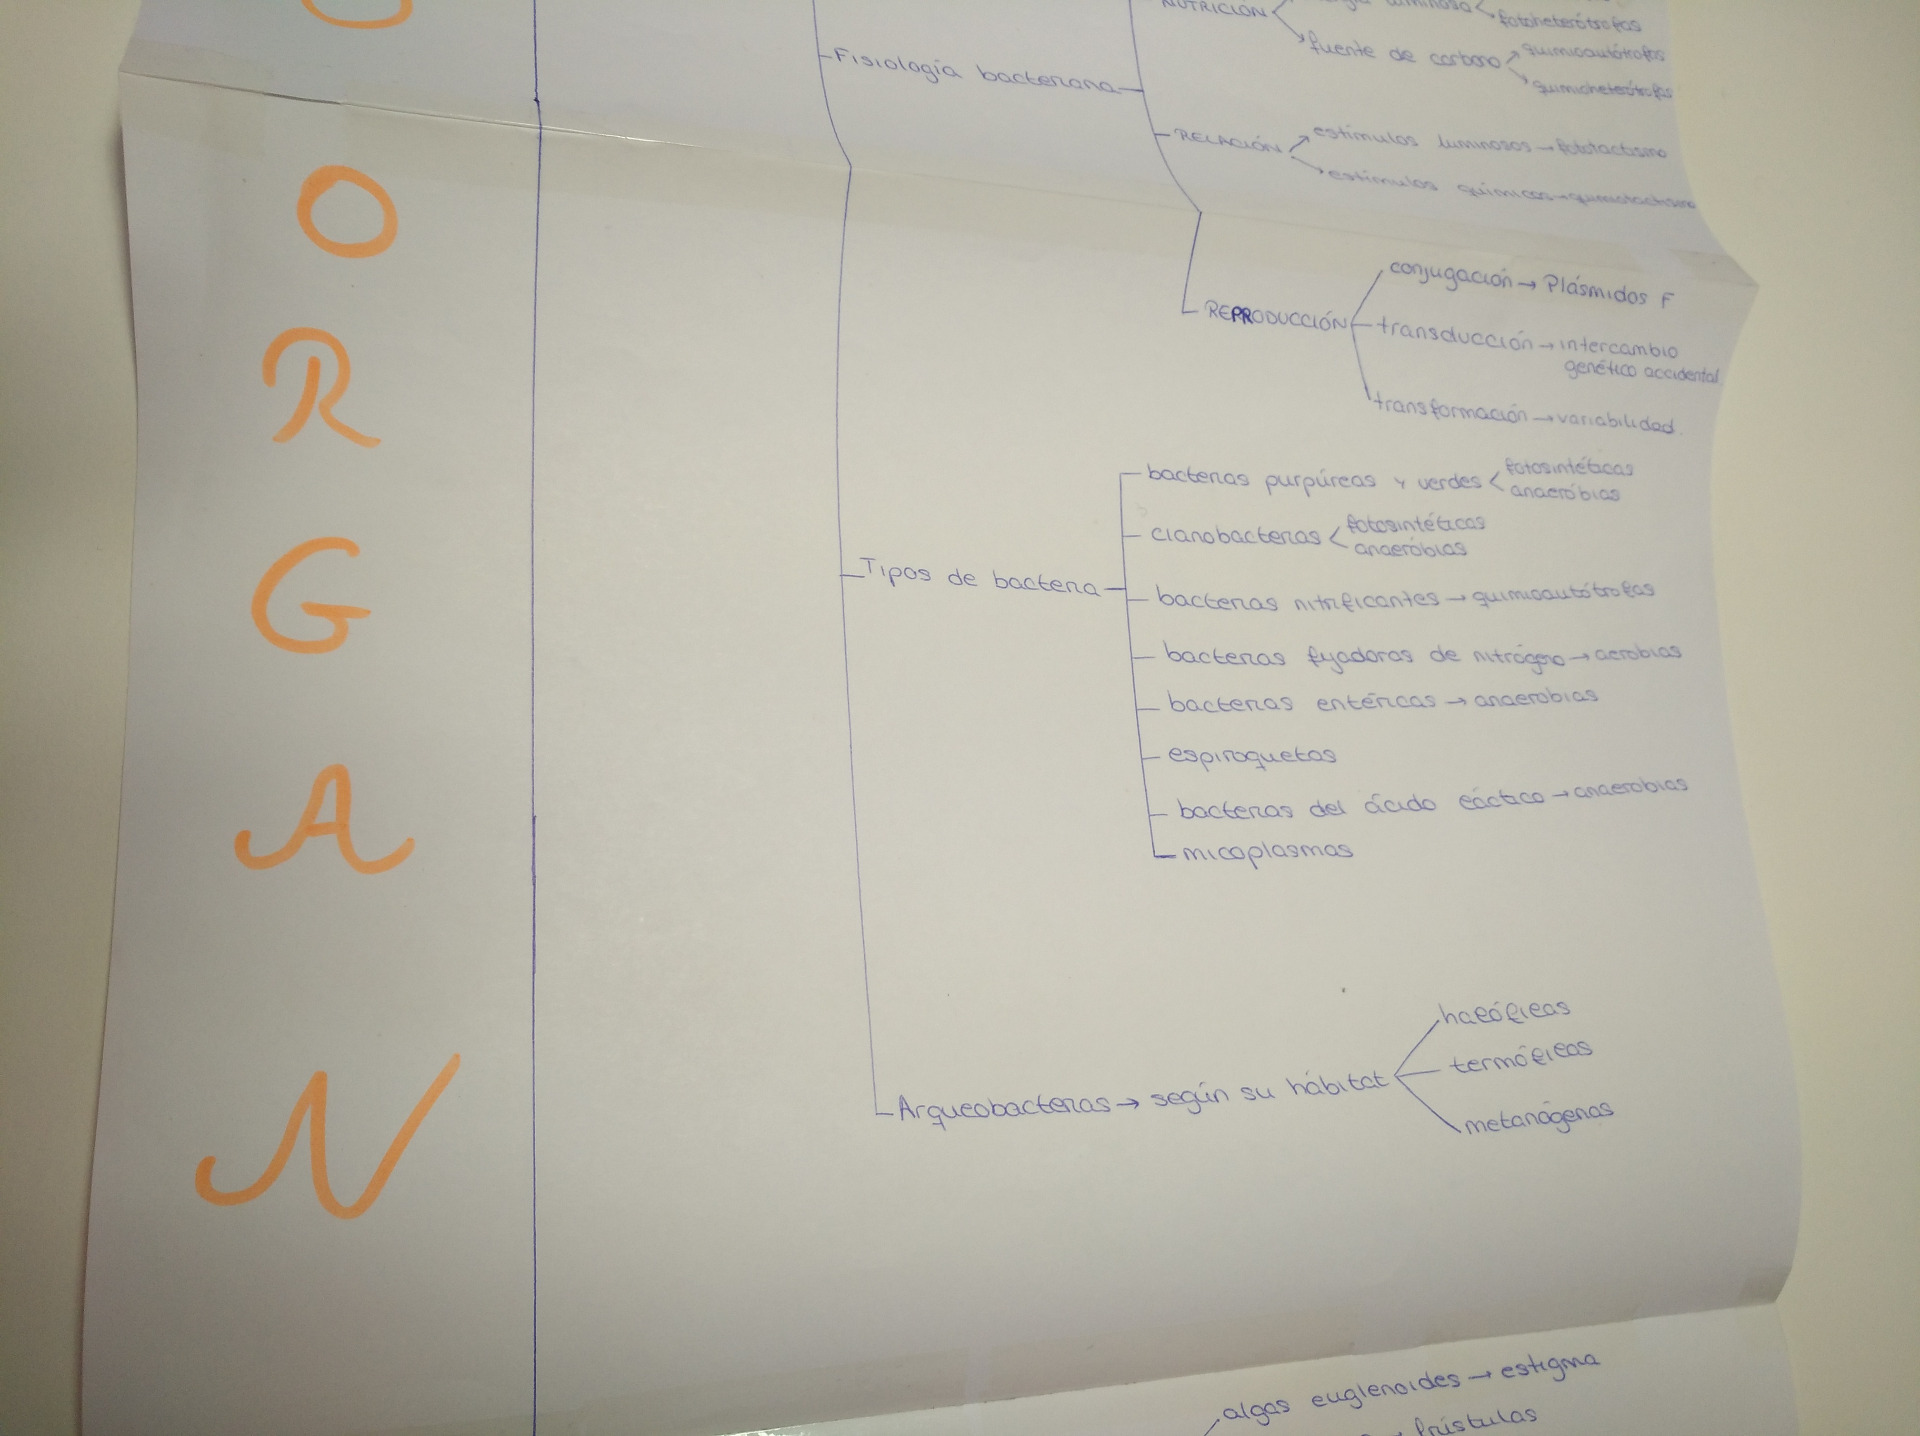 O
R
G
A
N
NUTRICIÓN
luminosa
fotoheterótrofas
fuente de carbono
quimioautótrofas
quimioheterótrofas
Fisiología bacteriana
RELACIÓN
estímulos luminosos → fototactismo
estímulos químicos → quimiotactismo
REPRODUCCIÓN
conjugación → Plásmidos F
transducción → intercambio
genético accidental.
transformación → variabilidad.
Tipos de bacteria
bacterias purpúreas y verdes
fotosintéticas
anaeróbias
cianobacterias
fotosintéticas
anaeróbias
bacterias nitrificantes → quimioautótrofas
bacterias fijadoras de nitrógeno → aerobias
bacterias entéricas → anaerobias
espiroquetas
bacterias del ácido láctico → anaerobias
micoplasmas
Arqueobacterias → según su hábitat
halófilas
termófilas
metanógenas
algas euglenoides → estigma
frústulas